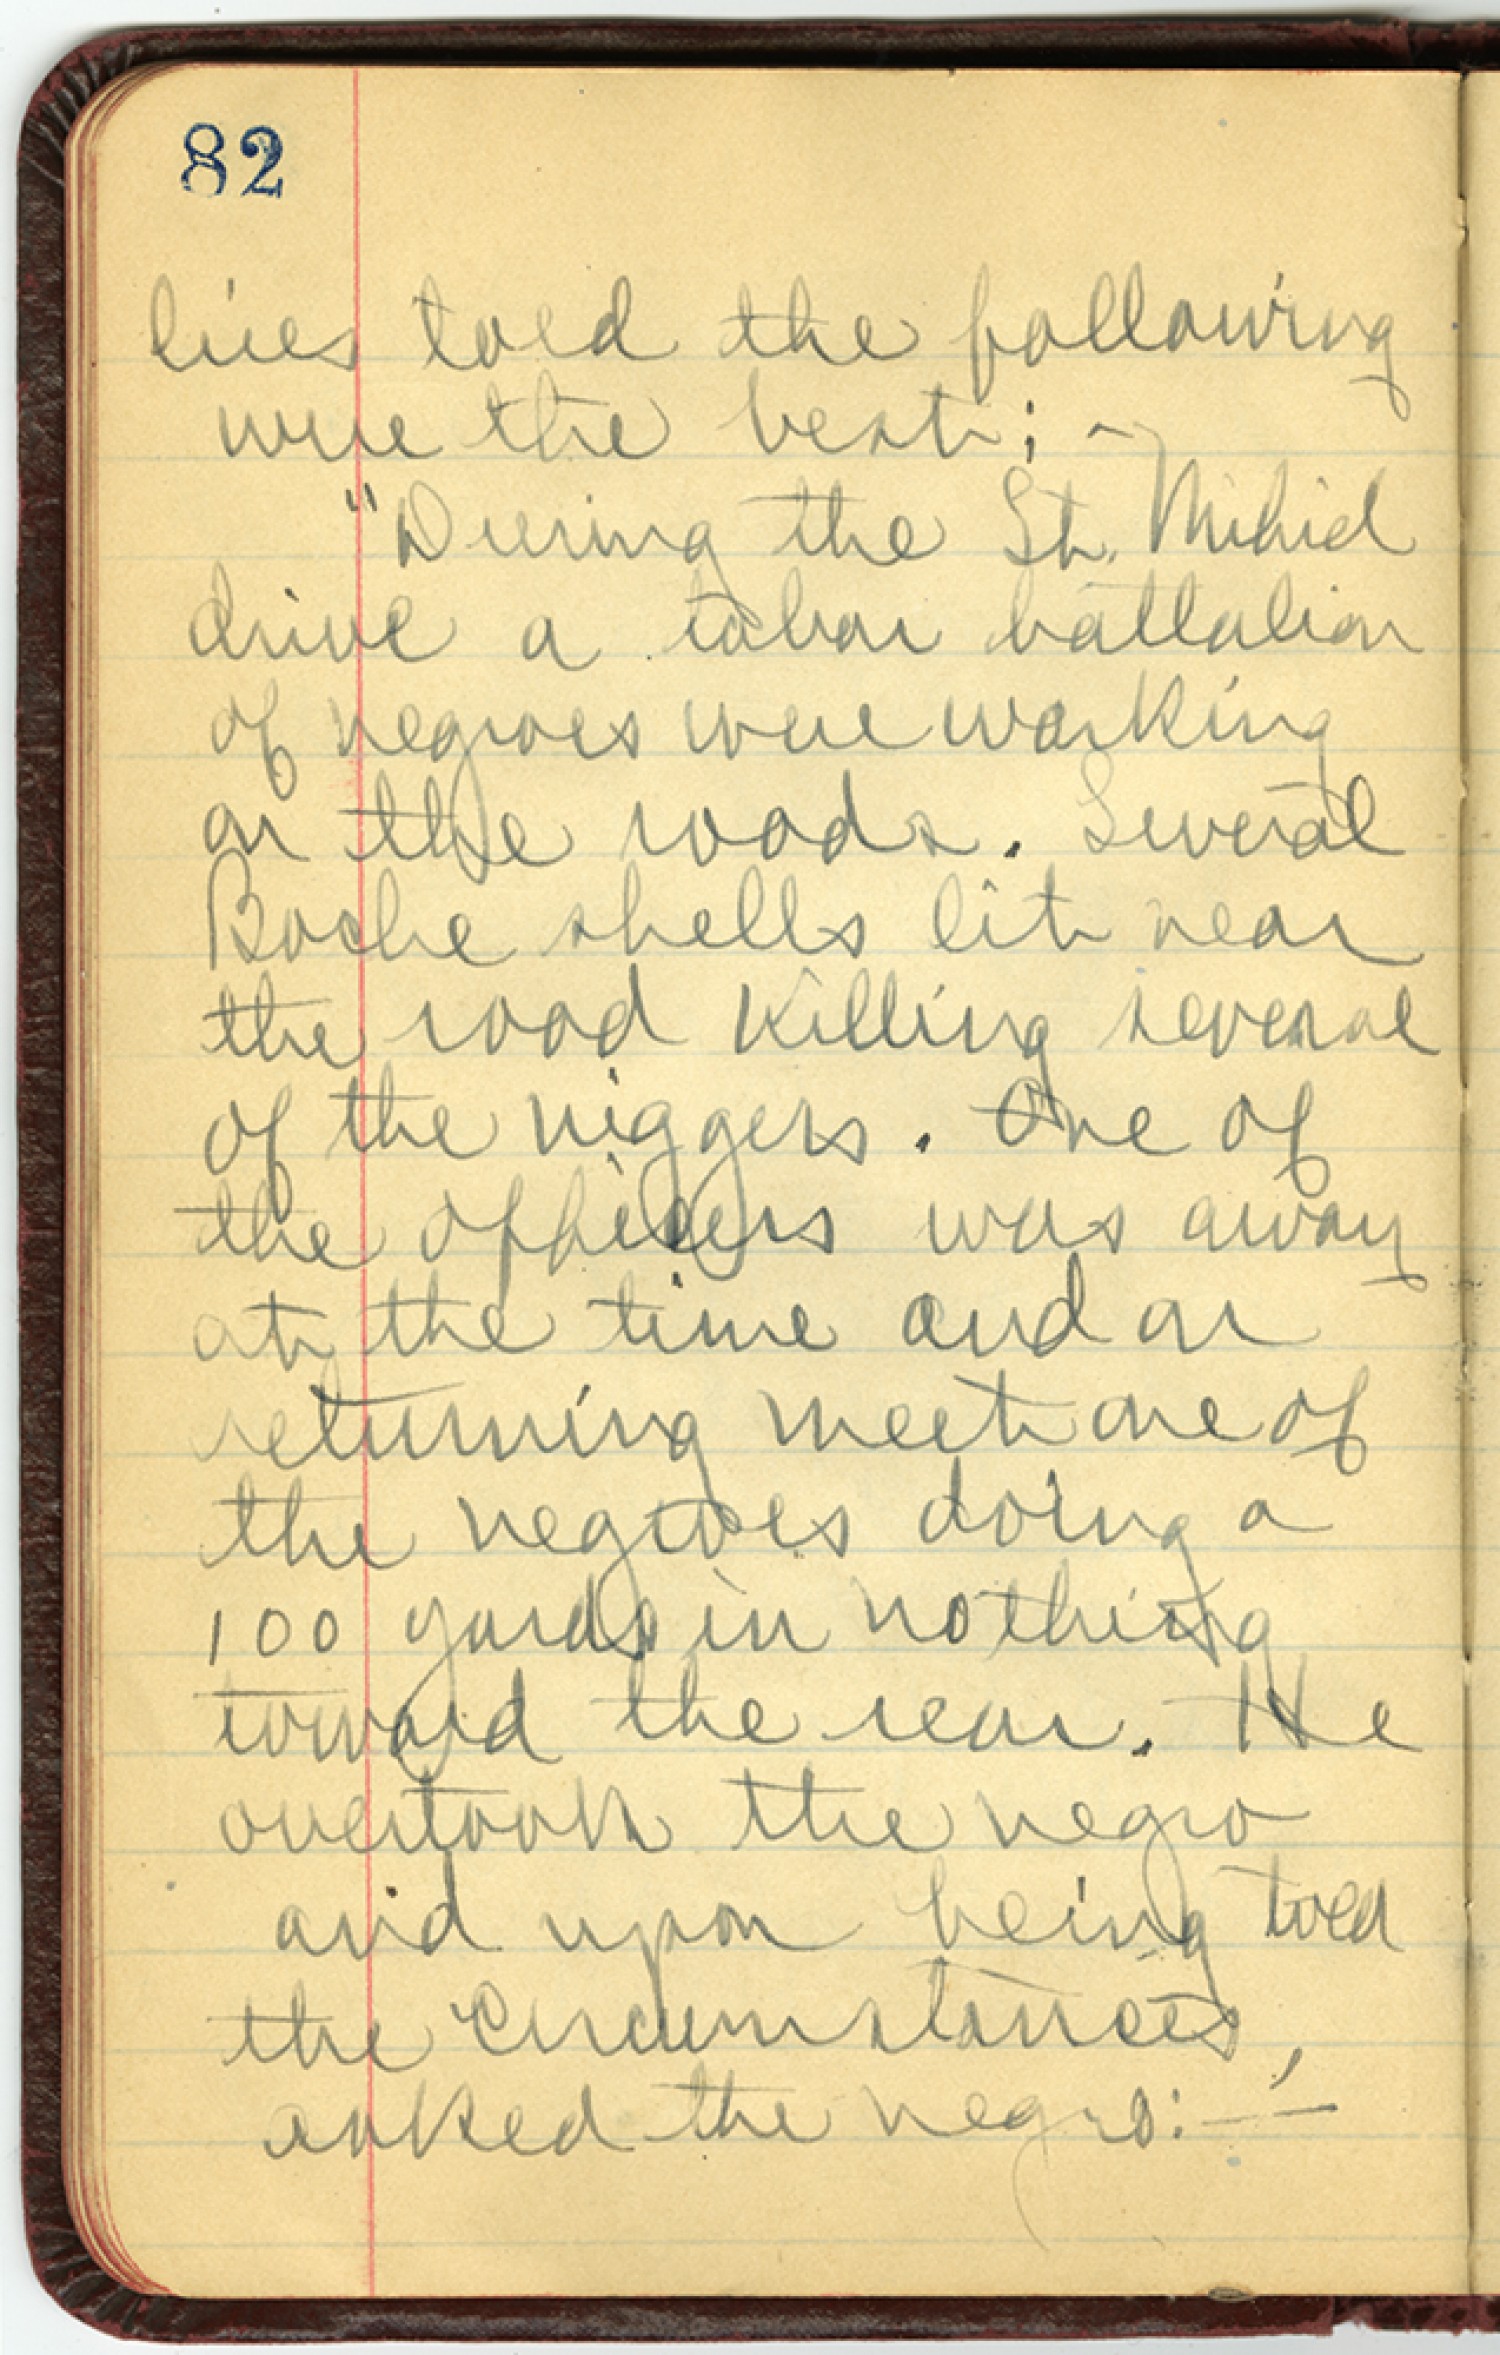 82
lies told the following
were the best; -
"During the St. Mihiel
drive a labor battalion
of negroes were working
on the roads. Several
Boche shells lit near
the road killing several
of the niggers. One of
the officers was away
at the time and on
returning meet one of
the negroes doing a
100 yards in nothing
toward the rear. He
overtook the negro
and upon being told
the circumstances,
asked the negro: -'-